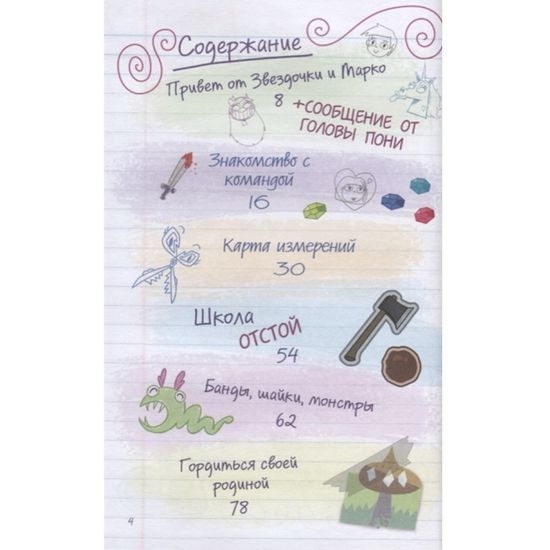 Содержание
Привет от Звездочки и Марко
8 +СООБЩЕНИЕ ОТ
ГОЛОВЫ ПОНИ
Знакомство с
командой
16
Карта измерений
30
Школа
ОТСТОЙ
54
Банды, шайки, монстры
62
Гордиться своей
родиной
78
4